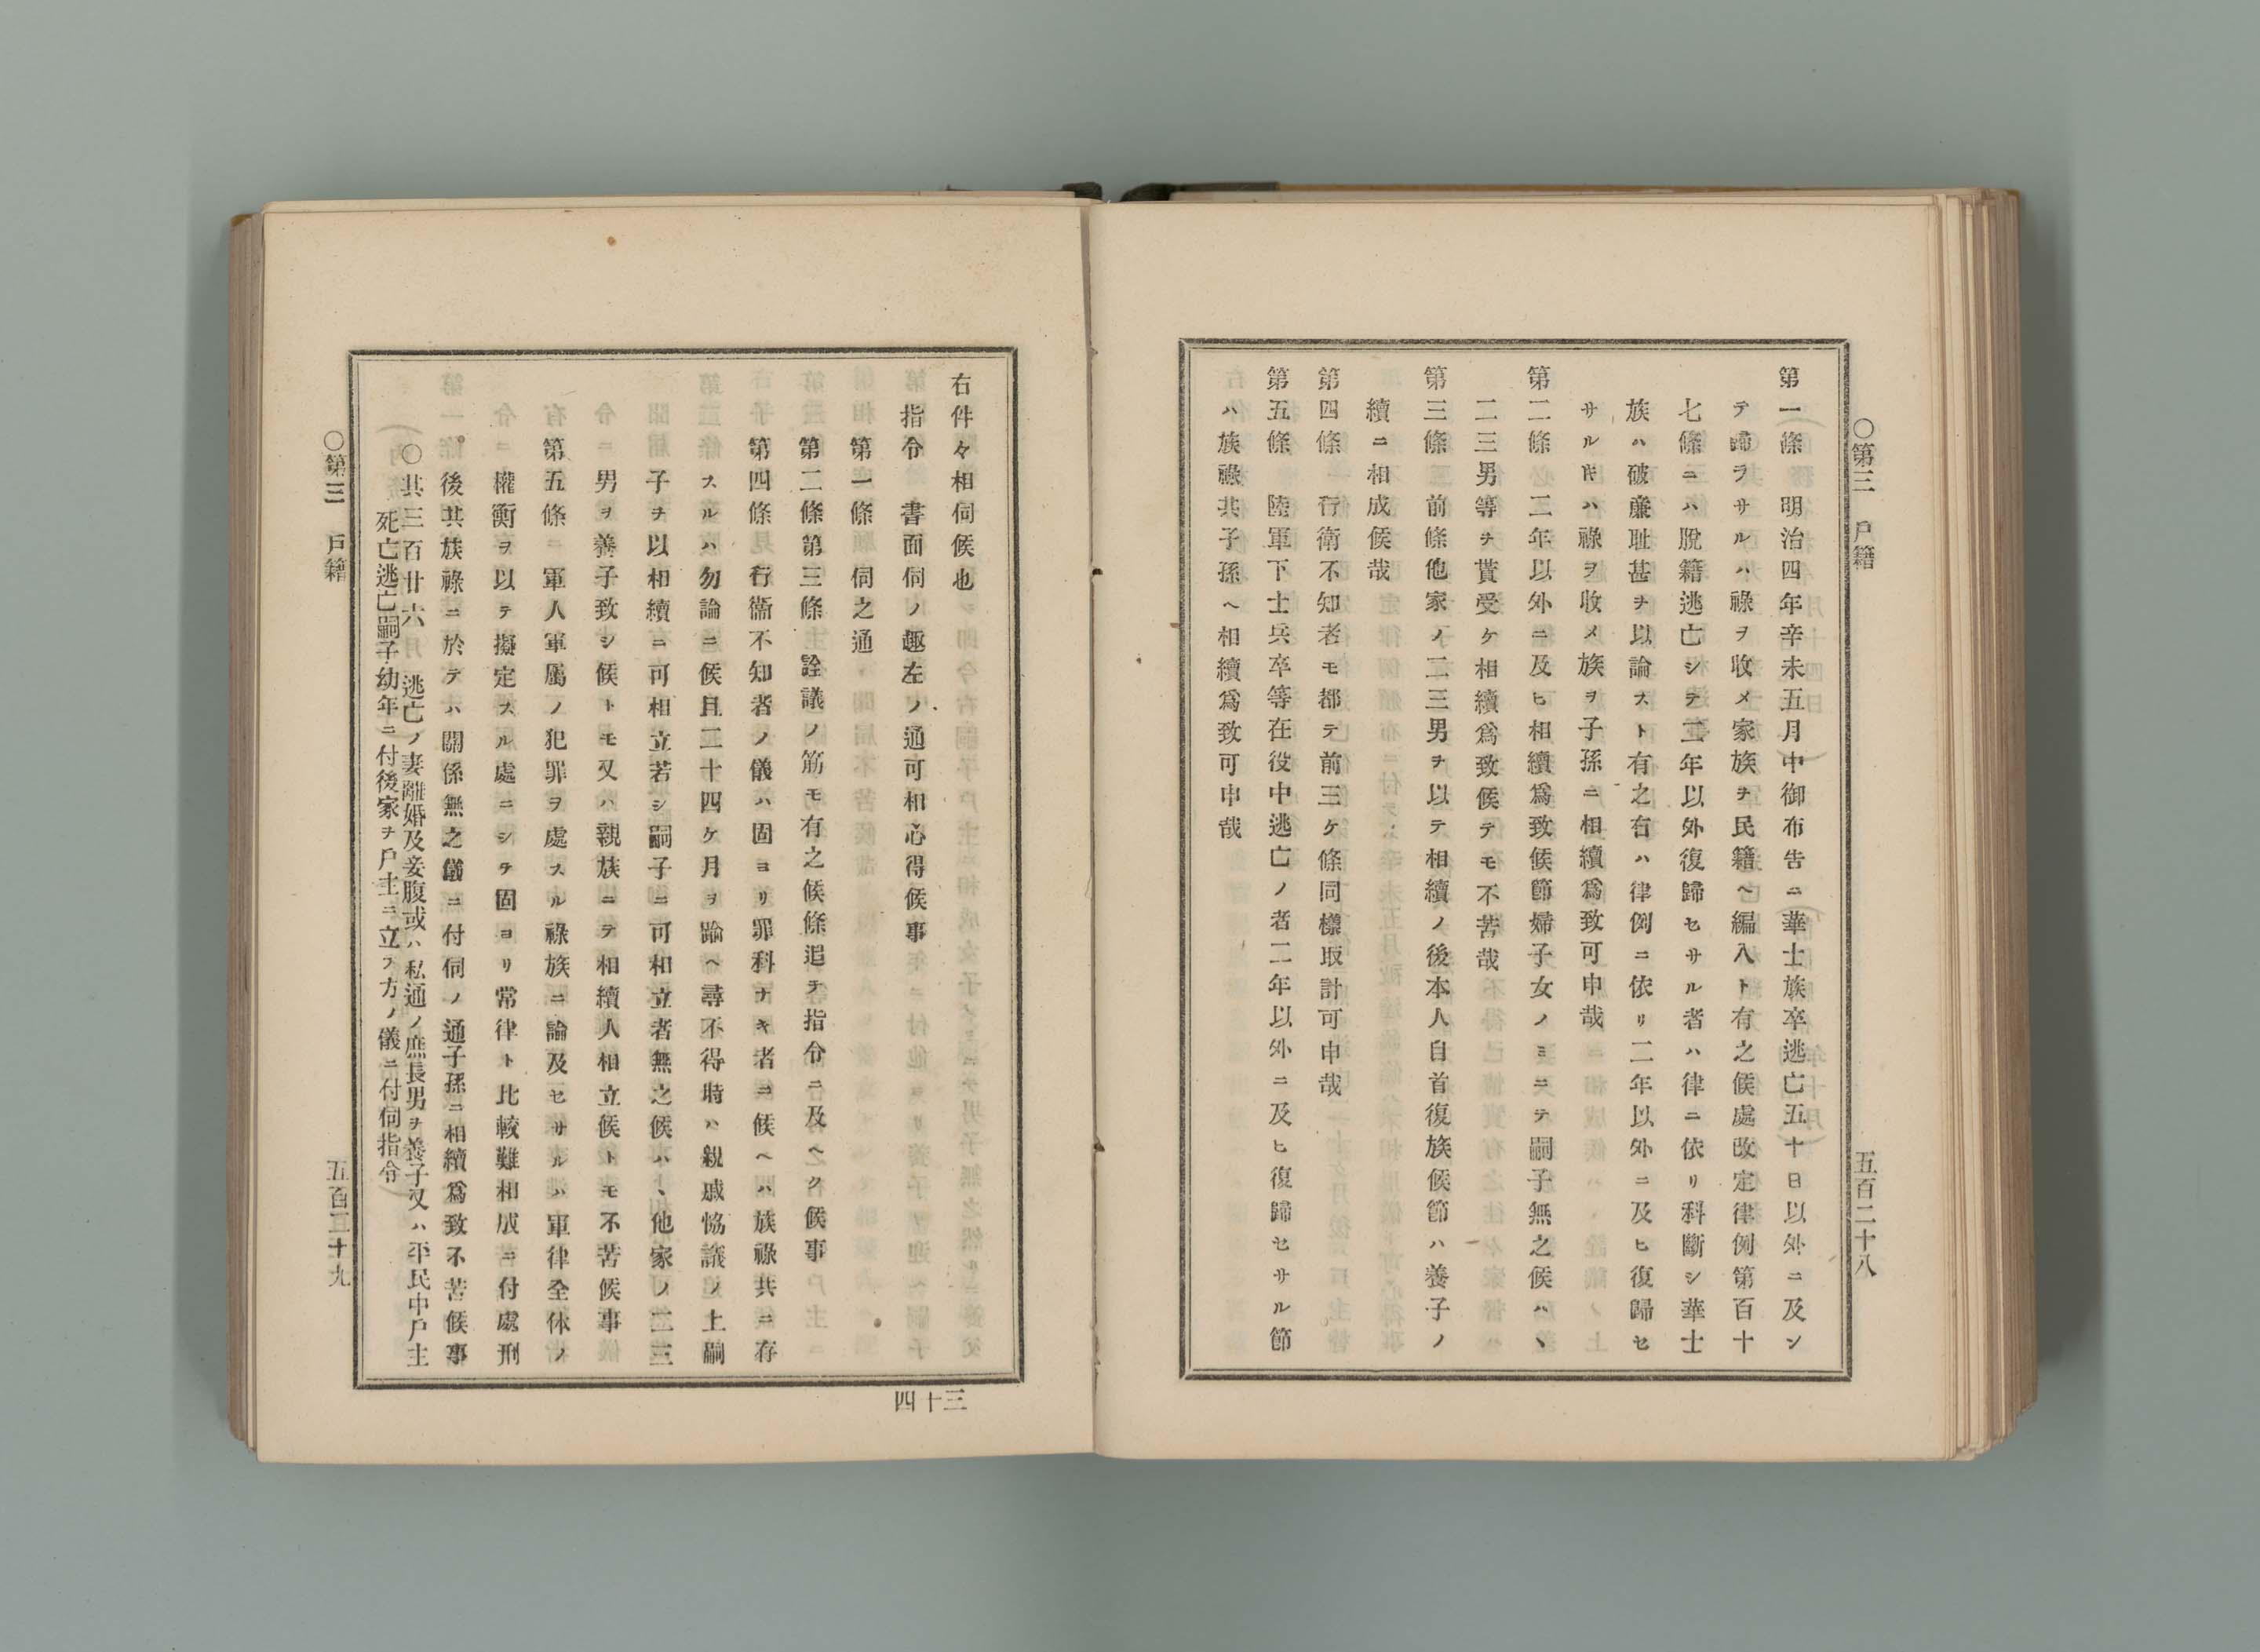 ○第三　戸籍
五百二十八
第一條　明治四年辛未五月中御布告ニ華士族卒逃亡五十日以外ニ及シ
テ歸ラサルハ祿ヲ收メ家族ヲ民籍ヘ編入ト有之候處改定律例第百十
七條ニハ脫籍逃亡シテ二年以外復歸セサル者ハ律ニ依リ科斷シ華士
族ハ破廉耻甚ヲ以論スト有之右ハ律例ニ依リ二年以外ニ及ヒ復歸セ
サル時ハ祿ヲ收メ族ヲ子孫ニ相續爲致可申哉
第二條　二年以外ニ及ヒ相續爲致候節婦子女ノミニテ嗣子無之候ハヽ
二三男等ヲ貰受ケ相續爲致候テモ不苦哉
第三條　前條他家ノ二三男ヲ以テ相續ノ後本人自首復族候節ハ養子ノ
續ニ相成候哉
第四條　行衛不知者モ都テ前三ケ條同樣取計可申哉
第五條　陸軍下士兵卒等在役中逃亡ノ者二年以外ニ及ヒ復歸セサル節
ハ族祿共子孫ヘ相續爲致可申哉
右件々相伺候也
指令　書面伺ノ趣左ノ通可相心得候事
第一條　伺之通
第二條第三條　詮議ノ筋モ有之候條追テ指令ニ及ヘク候事
第四條　行衞不知者ノ儀ハ固ヨリ罪科ナキ者ニ候ヘハ族祿共ニ存
スルハ勿論ニ候且二十四ケ月ヲ踰ヘ尋不得時ハ親戚恊議ノ上嗣
子ヲ以相續ニ可相立若シ嗣子ニ可相立者無之候ハヽ他家ノ二三
男ヲ養子致シ候トモ又ハ親族ニテ相續人相立候トモ不苦候事
第五條　軍人軍屬ノ犯罪ヲ處スル祿族ニ論及セサルハ軍律全体ノ
權衡ヲ以テ擬定スル處ニシテ固ヨリ常律ト比較難相成ニ付處刑
後其族祿ニ於テハ關係無之儀ニ付伺ノ通子孫ニ相續爲致不苦候事
○其三百廿六　逃亡ノ妻離婚及妾腹或ハ私通ノ庶長男ヲ養子又ハ平民中戸主
死亡逃亡嗣子幼年ニ付後家ヲ戸主ニ立ス方ノ儀ニ付伺指令
○第三　戸籍
五百二十九
四十三